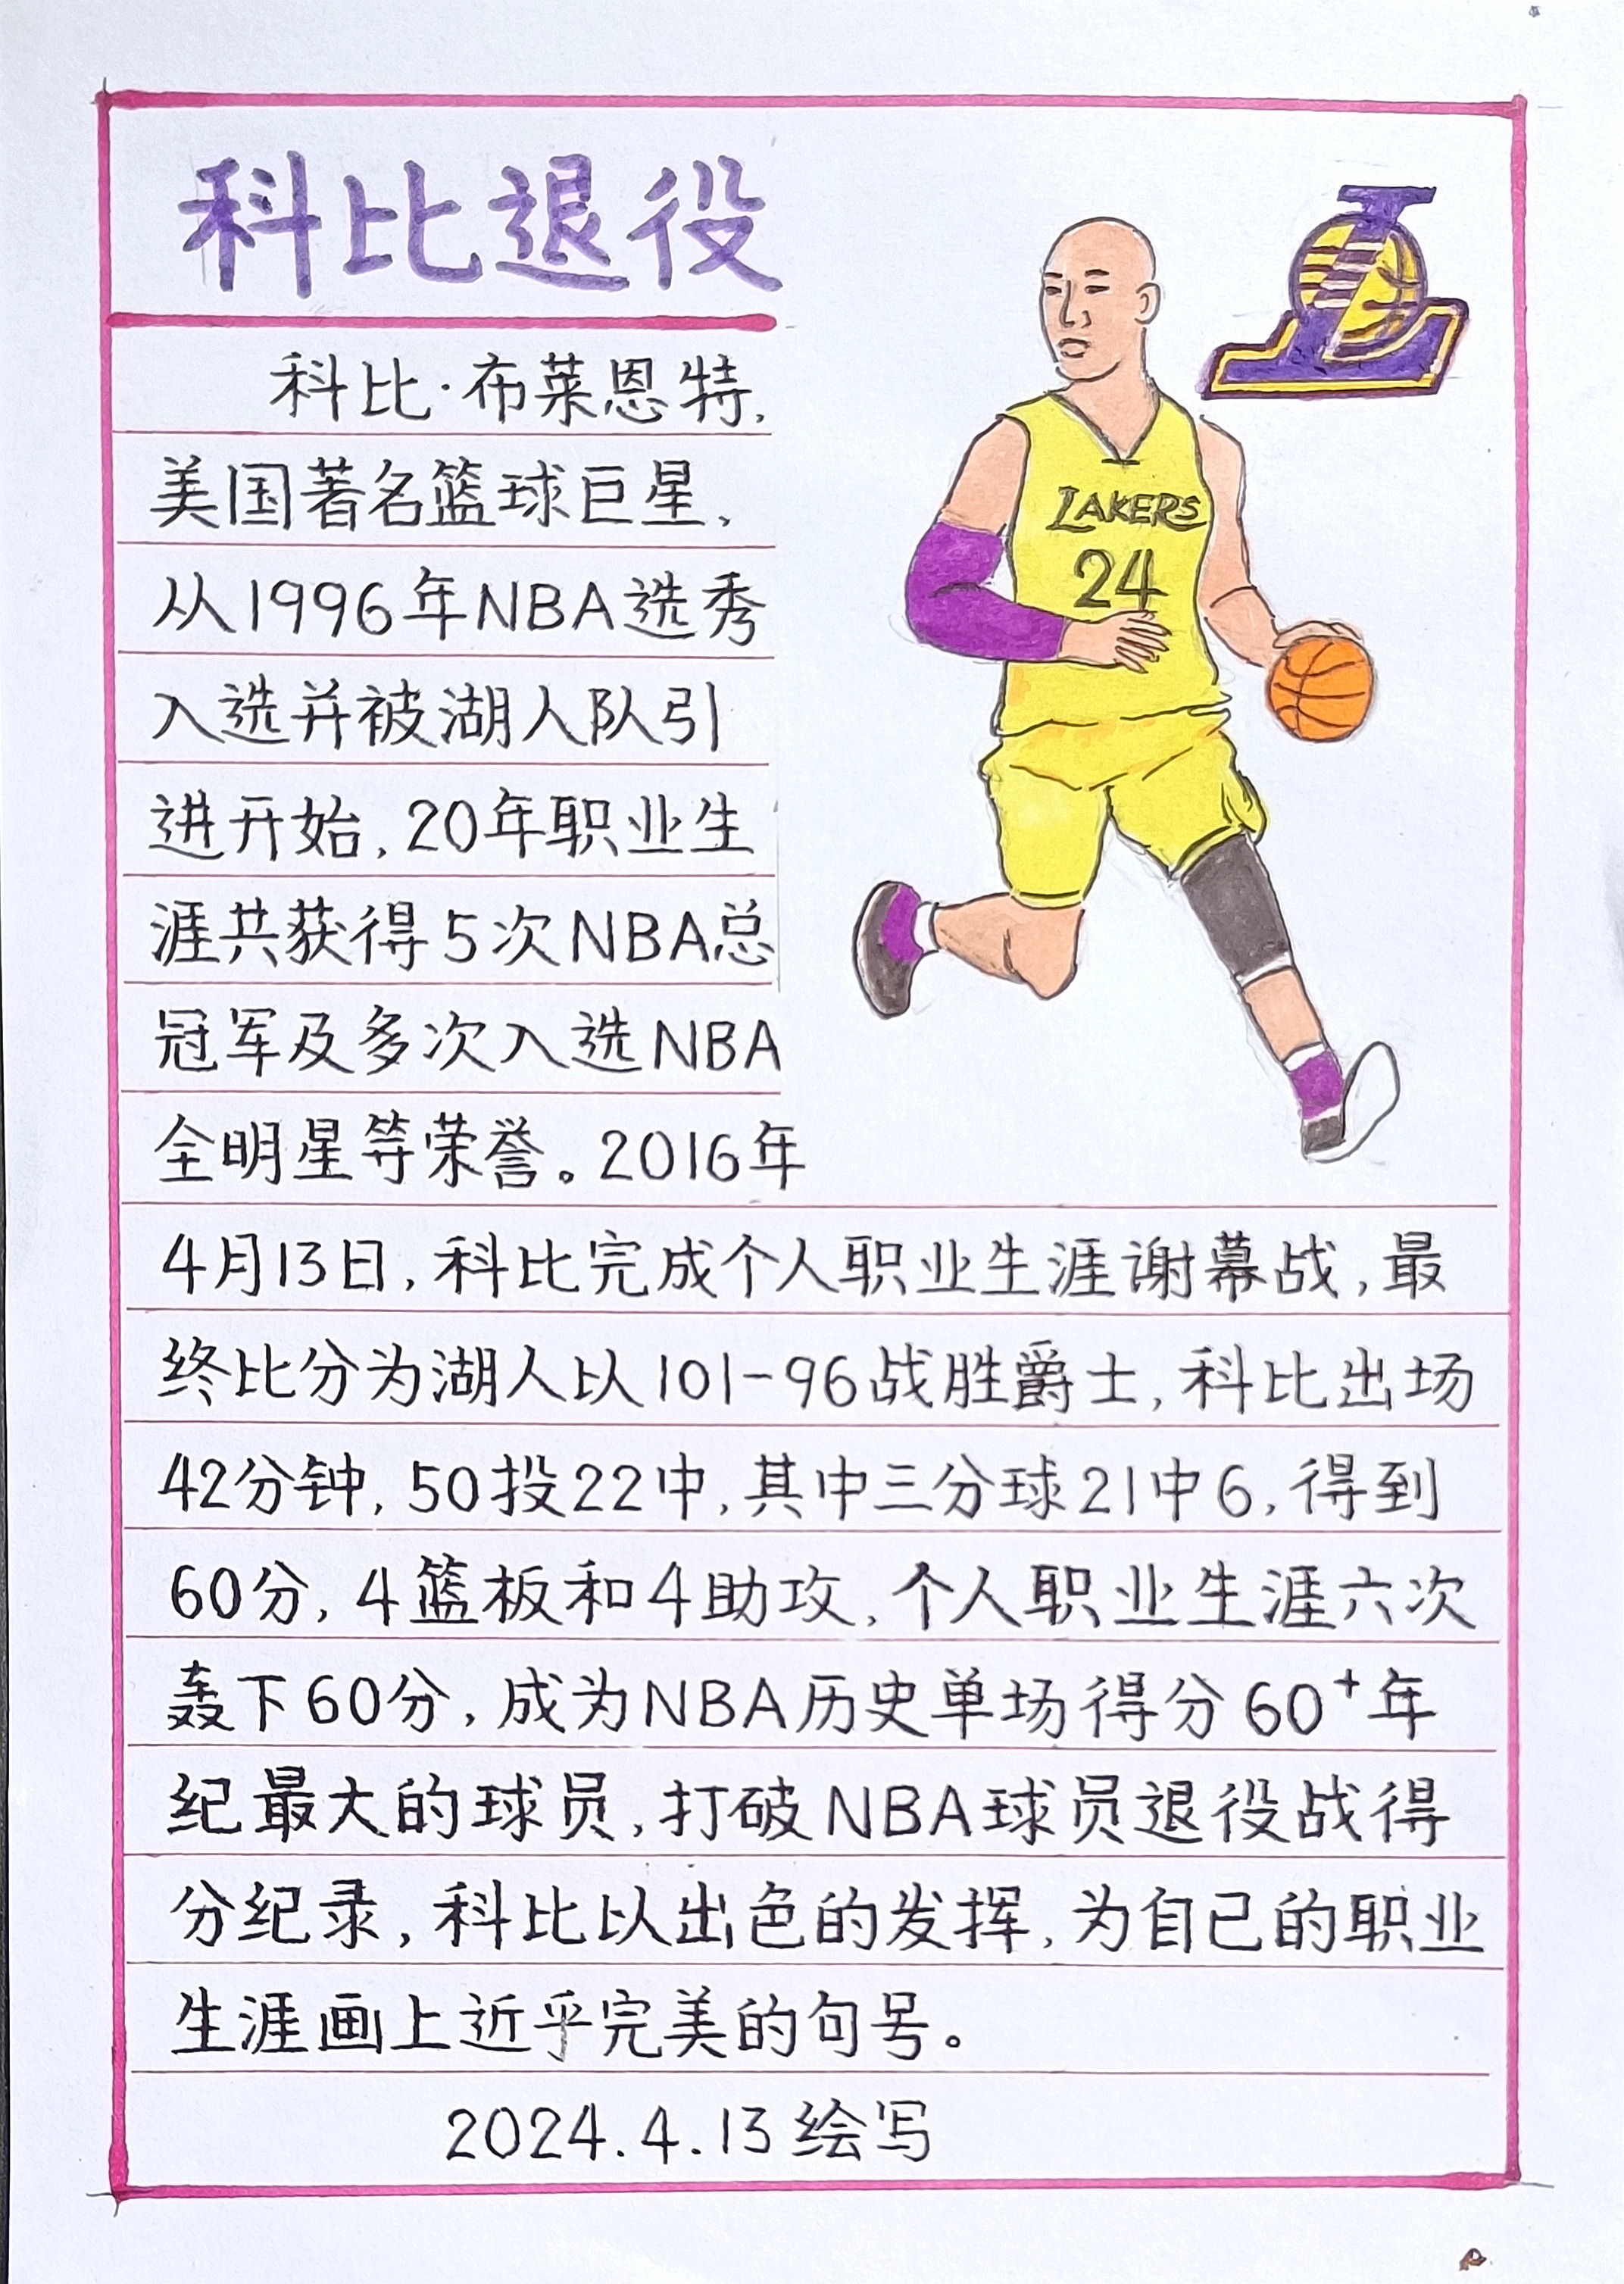 科比退役
科比·布莱恩特,
美国著名篮球巨星,
从1996年NBA选秀
入选并被湖人队引
进开始,20年职业生
涯共获得5次NBA总
冠军及多次入选NBA
全明星等荣誉。2016年
LAKERS
24
4月13日,科比完成个人职业生涯谢幕战,最
终比分为湖人以101-96战胜爵士,科比出场
42分钟,50投22中,其中三分球21中6,得到
60分,4篮板和4助攻,个人职业生涯六次
轰下60分,成为NBA历史单场得分60⁺年
纪最大的球员,打破NBA球员退役战得
分纪录,科比以出色的发挥,为自己的职业
生涯画上近乎完美的句号。
2024.4.13绘写